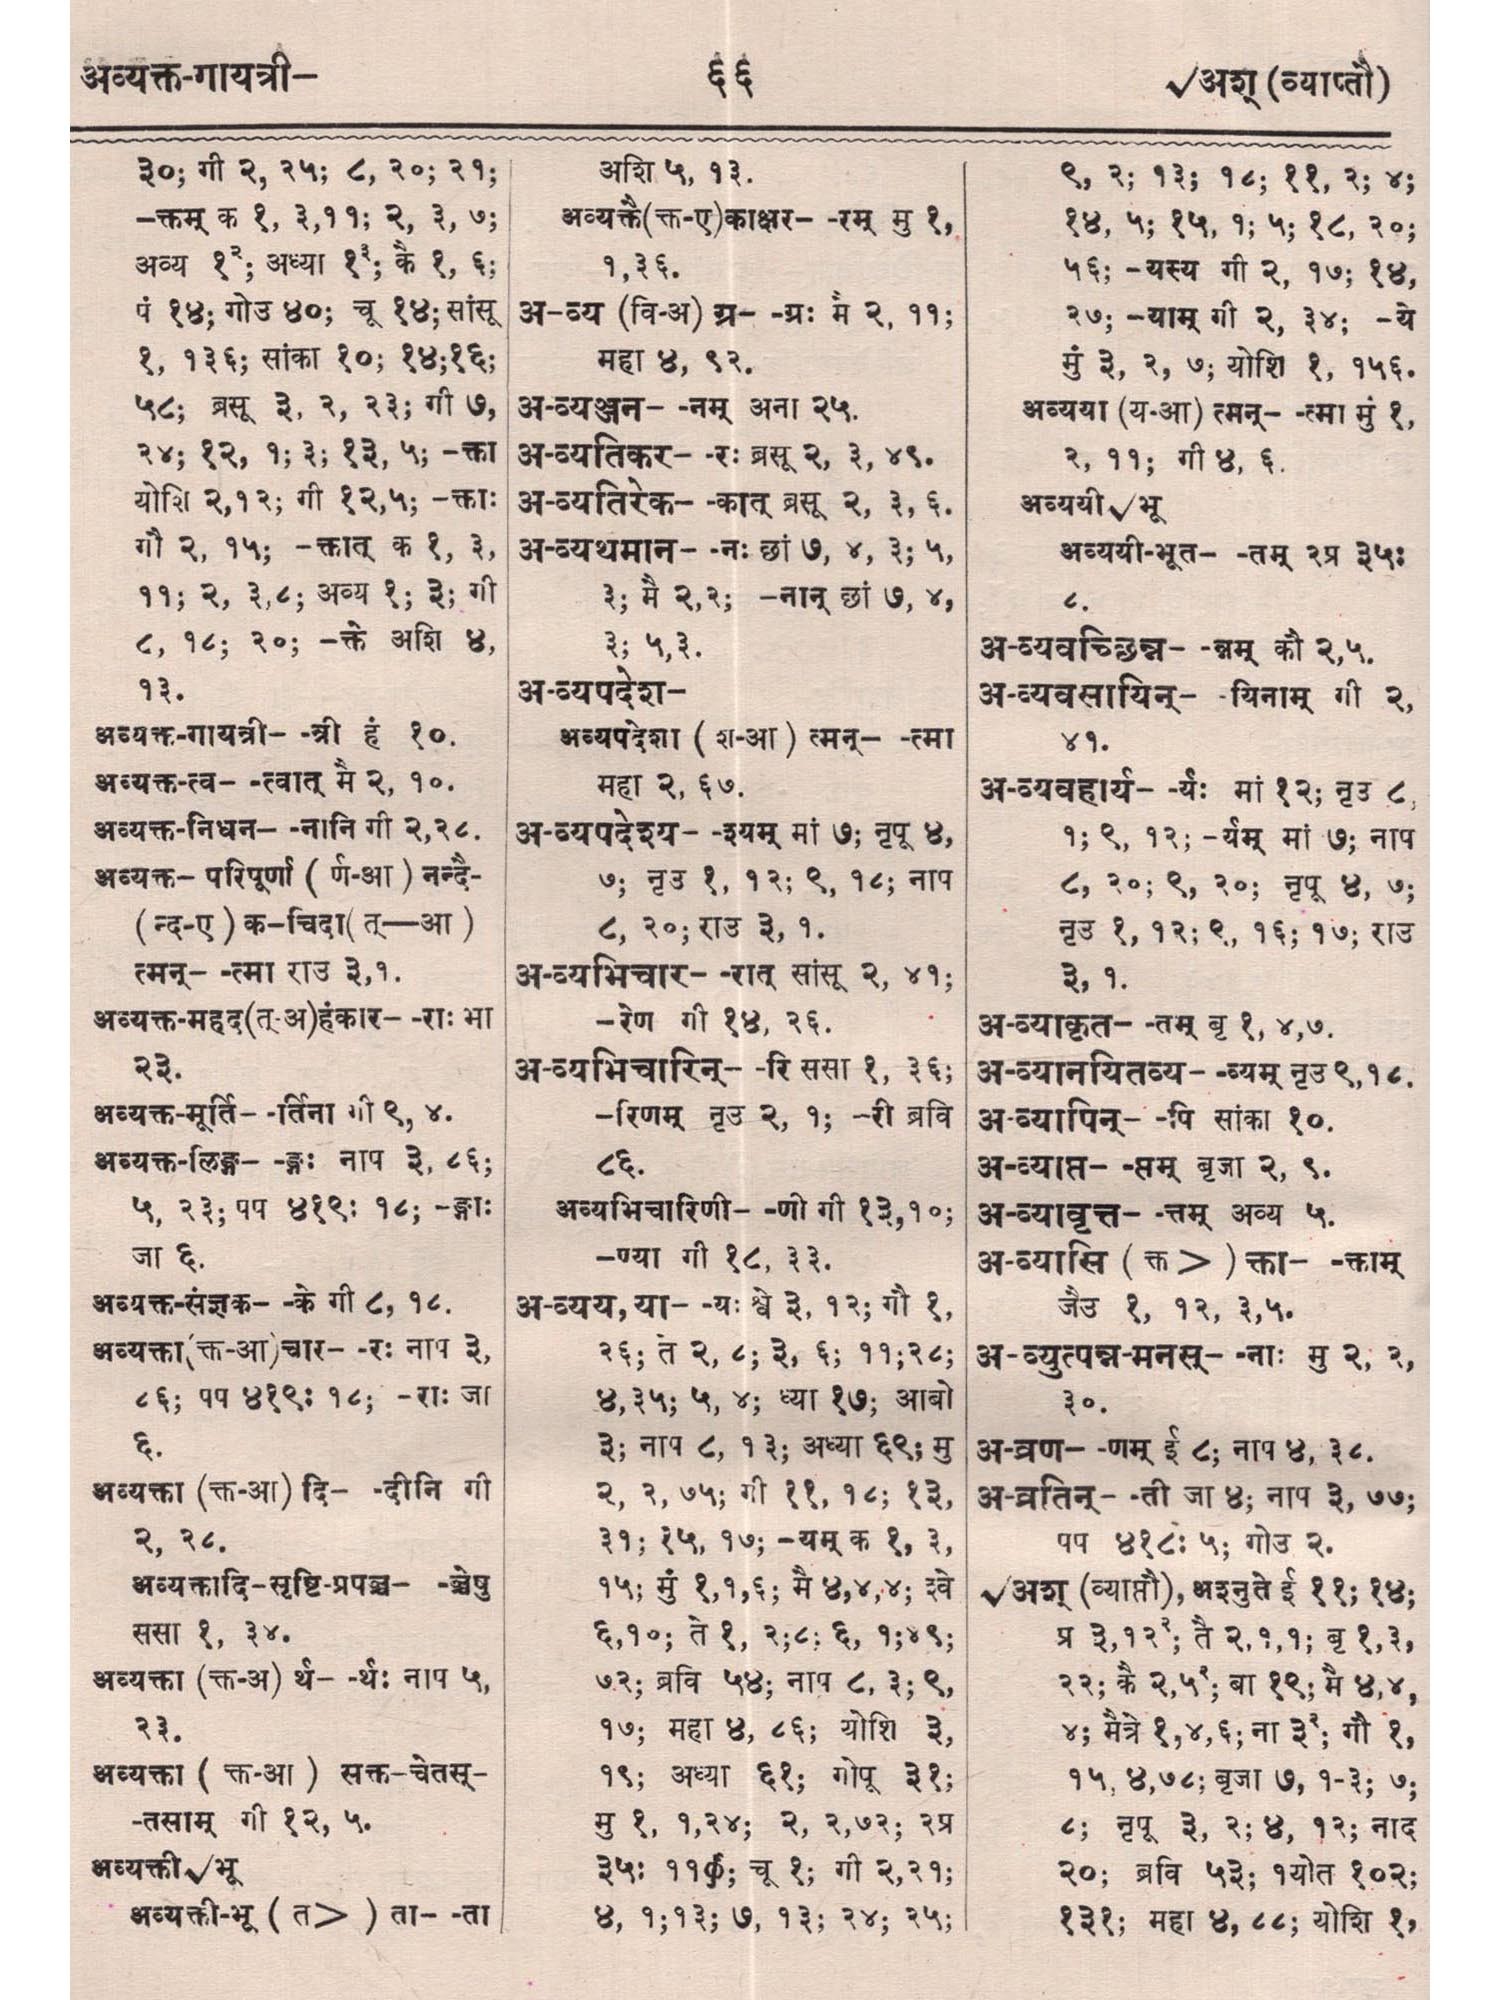 अव्यक्त-गायत्री–
६६
√अश् (व्याप्तौ)
३०; गी २, २५; ८, २०; २१;
–क्तम् क १, ३,११; २, ३, ७;
अव्य १२; अध्या १३; कै १, ६;
पं १४; गोउ ४०; चू १४; सांसू
१, १३६; सांका १०; १४;१६;
५८; ब्रसू ३, २, २३; गी ७,
२४; १२, १; ३; १३, ५; –क्ता
योशि २,१२; गी १२,५; –क्ताः
गौ २, १५; –क्तात् क १, ३,
११; २, ३,८; अव्य १; ३; गी
८, १८; २०; –क्ते अशि ४,
१३.
अव्यक्त-गायत्री– -त्री हं १०.
अव्यक्त-त्व– -त्वात् मै २, १०.
अव्यक्त-निधन– -नानि गी २,२८.
अव्यक्त– परिपूर्णा ( र्ण-आ ) नन्दै-
(न्द-ए ) क–चिदा( त्—आ )
त्मन्– -त्मा राउ ३,१.
अव्यक्त-महद(त्-अ)हंकार– -राः भा
२३.
अव्यक्त-मूर्ति– -र्तिना गी ९, ४.
अव्यक्त-लिङ्ग– -ङ्गः नाप ३, ८६;
५, २३; पप ४१९ः १८; –ङ्गाः
जा ६.
अव्यक्त-संज्ञक– -के गी ८, १८.
अव्यक्ता(क्त-आ)चार– -रः नाप ३,
८६; पप ४१९ः १८; –राः जा
६.
अव्यक्ता (क्त-आ) दि– -दीनि गी
२, २८.
अव्यक्तादि–सृष्टि-प्रपञ्च– -ञ्चेषु
ससा १, ३४.
अव्यक्ता (क्त-अ) र्थ– -र्थः नाप ५,
२३.
अव्यक्ता ( क्त-आ ) सक्त–चेतस्–
-तसाम् गी १२, ५.
अव्यक्ती√भू
अव्यक्ती-भू ( त> ) ता– -ता
अशि ५, १३.
अव्यक्तै(क्त-ए)काक्षर– -रम् मु १,
१,३६.
अ–व्य (वि-अ) ग्र– -ग्रः मै २, ११;
महा ४, ९२.
अ-व्यञ्जन– -नम् अना २५.
अ-व्यतिकर– -रः ब्रसू २, ३, ४९.
अ-व्यतिरेक– -कात् ब्रसू २, ३, ६.
अ-व्यथमान– -नः छां ७, ४, ३; ५,
३; मै २,२; –नान् छां ७, ४,
३; ५,३.
अ-व्यपदेश–
अव्यपदेशा ( श-आ ) त्मन्– -त्मा
महा २, ६७.
अ-व्यपदेश्य– -श्यम् मां ७; नृपू ४,
७; नृउ १, १२; ९, १८; नाप
८, २०; राउ ३, १.
अ-व्यभिचार– -रात् सांसू २, ४१;
–रेण गी १४, २६.
अ-व्यभिचारिन्– -रि ससा १, ३६;
–रिणम् नृउ २, १; –री ब्रवि
८६.
अव्यभिचारिणी– -णी गी १३,१०;
–ण्या गी १८, ३३.
अ-व्यय, या– -यः श्वे ३, १२; गौ १,
२६; ते २, ८; ३, ६; ११;२८;
४,३५; ५, ४; ध्या १७; आबो
३; नाप ८, १३; अध्या ६९; मु
२, २, ७५; गी ११, १८; १३,
३१; १५, १७; –यम् क १, ३,
१५; मुं १,१,६; मै ४,४,४; श्वे
६,१०; ते १, २;८; ६, १;४९;
७२; ब्रवि ५४; नाप ८, ३; ९,
१७; महा ४, ८६; योशि ३,
१९; अध्या ६१; गोपू ३१;
मु १, १,२४; २, २,७२; २प्र
३५ः ११; चू १; गी २,२१;
४, १;१३; ७, १३; २४; २५;
९, २; १३; १८; ११, २; ४;
१४, ५; १५, १; ५; १८, २०;
५६; –यस्य गी २, १७; १४,
२७; –याम् गी २, ३४; –ये
मुं ३, २, ७; योशि १, १५६.
अव्यया (य-आ) त्मन्– -त्मा मुं १,
२, ११; गी ४, ६.
अव्ययी√भू
अव्ययी-भूत– -तम् २प्र ३५ः
८.
अ-व्यवच्छिन्न– -न्नम् कौ २,५.
अ-व्यवसायिन्– -यिनाम् गी २,
४१.
अ-व्यवहार्य– -र्यः मां १२; नृउ ८,
१; ९, १२; –र्यम् मां ७; नाप
८, २०; ९, २०; नृपू ४, ७;
नृउ १, १२; ९, १६; १७; राउ
३, १.
अ-व्याकृत– -तम् बृ १, ४,७.
अ-व्यानयितव्य– -व्यम् नृउ ९,१८.
अ-व्यापिन्– -पि सांका १०.
अ-व्याप्त– -प्तम् बृजा २, ९.
अ-व्यावृत्त– -त्तम् अव्य ५.
अ-व्यासि ( क्त > ) क्ता– -क्ताम्
जैउ १, १२, ३,५.
अ-व्युत्पन्न-मनस्– -नाः मु २, २,
३०.
अ-व्रण– -णम् ई ८; नाप ४, ३८.
अ-व्रतिन्– -ती जा ४; नाप ३, ७७;
पप ४१८ः ५; गोउ २.
√अश् (व्याप्तौ), अश्नुते ई ११; १४;
प्र ३,१२२; तै २,१,१; बृ १,३,
२२; कै २,५२; बा १९; मै ४,४,
४; मैत्रे १,४,६; ना ३२; गौ १,
१५, ४,७८; बृजा ७, १-३; ७;
८; नृपू ३, २; ४, १२; नाद
२०; ब्रवि ५३; १योत १०२;
१३१; महा ४, ८८; योशि १,